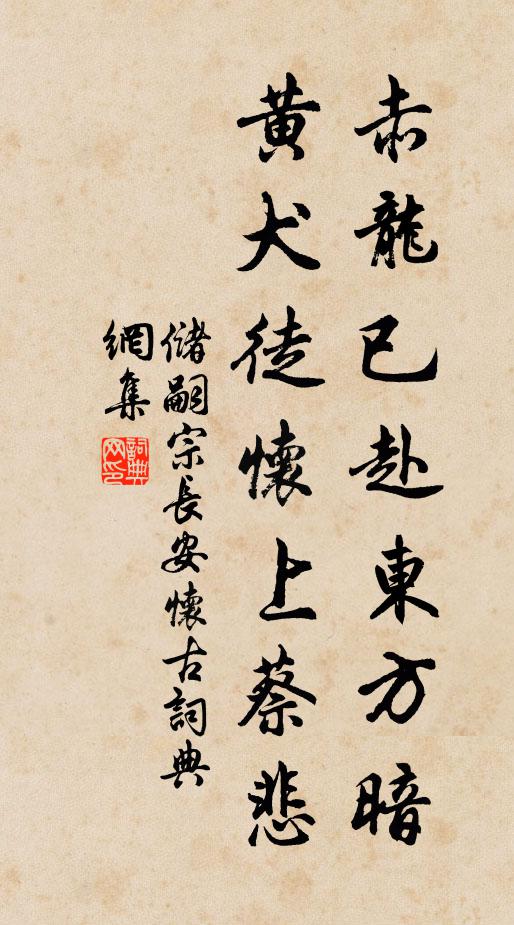 赤龍已赴東方暗
黃犬徒懷上蔡悲
儲嗣宗長安懷古詞典
網集
詞典
网印